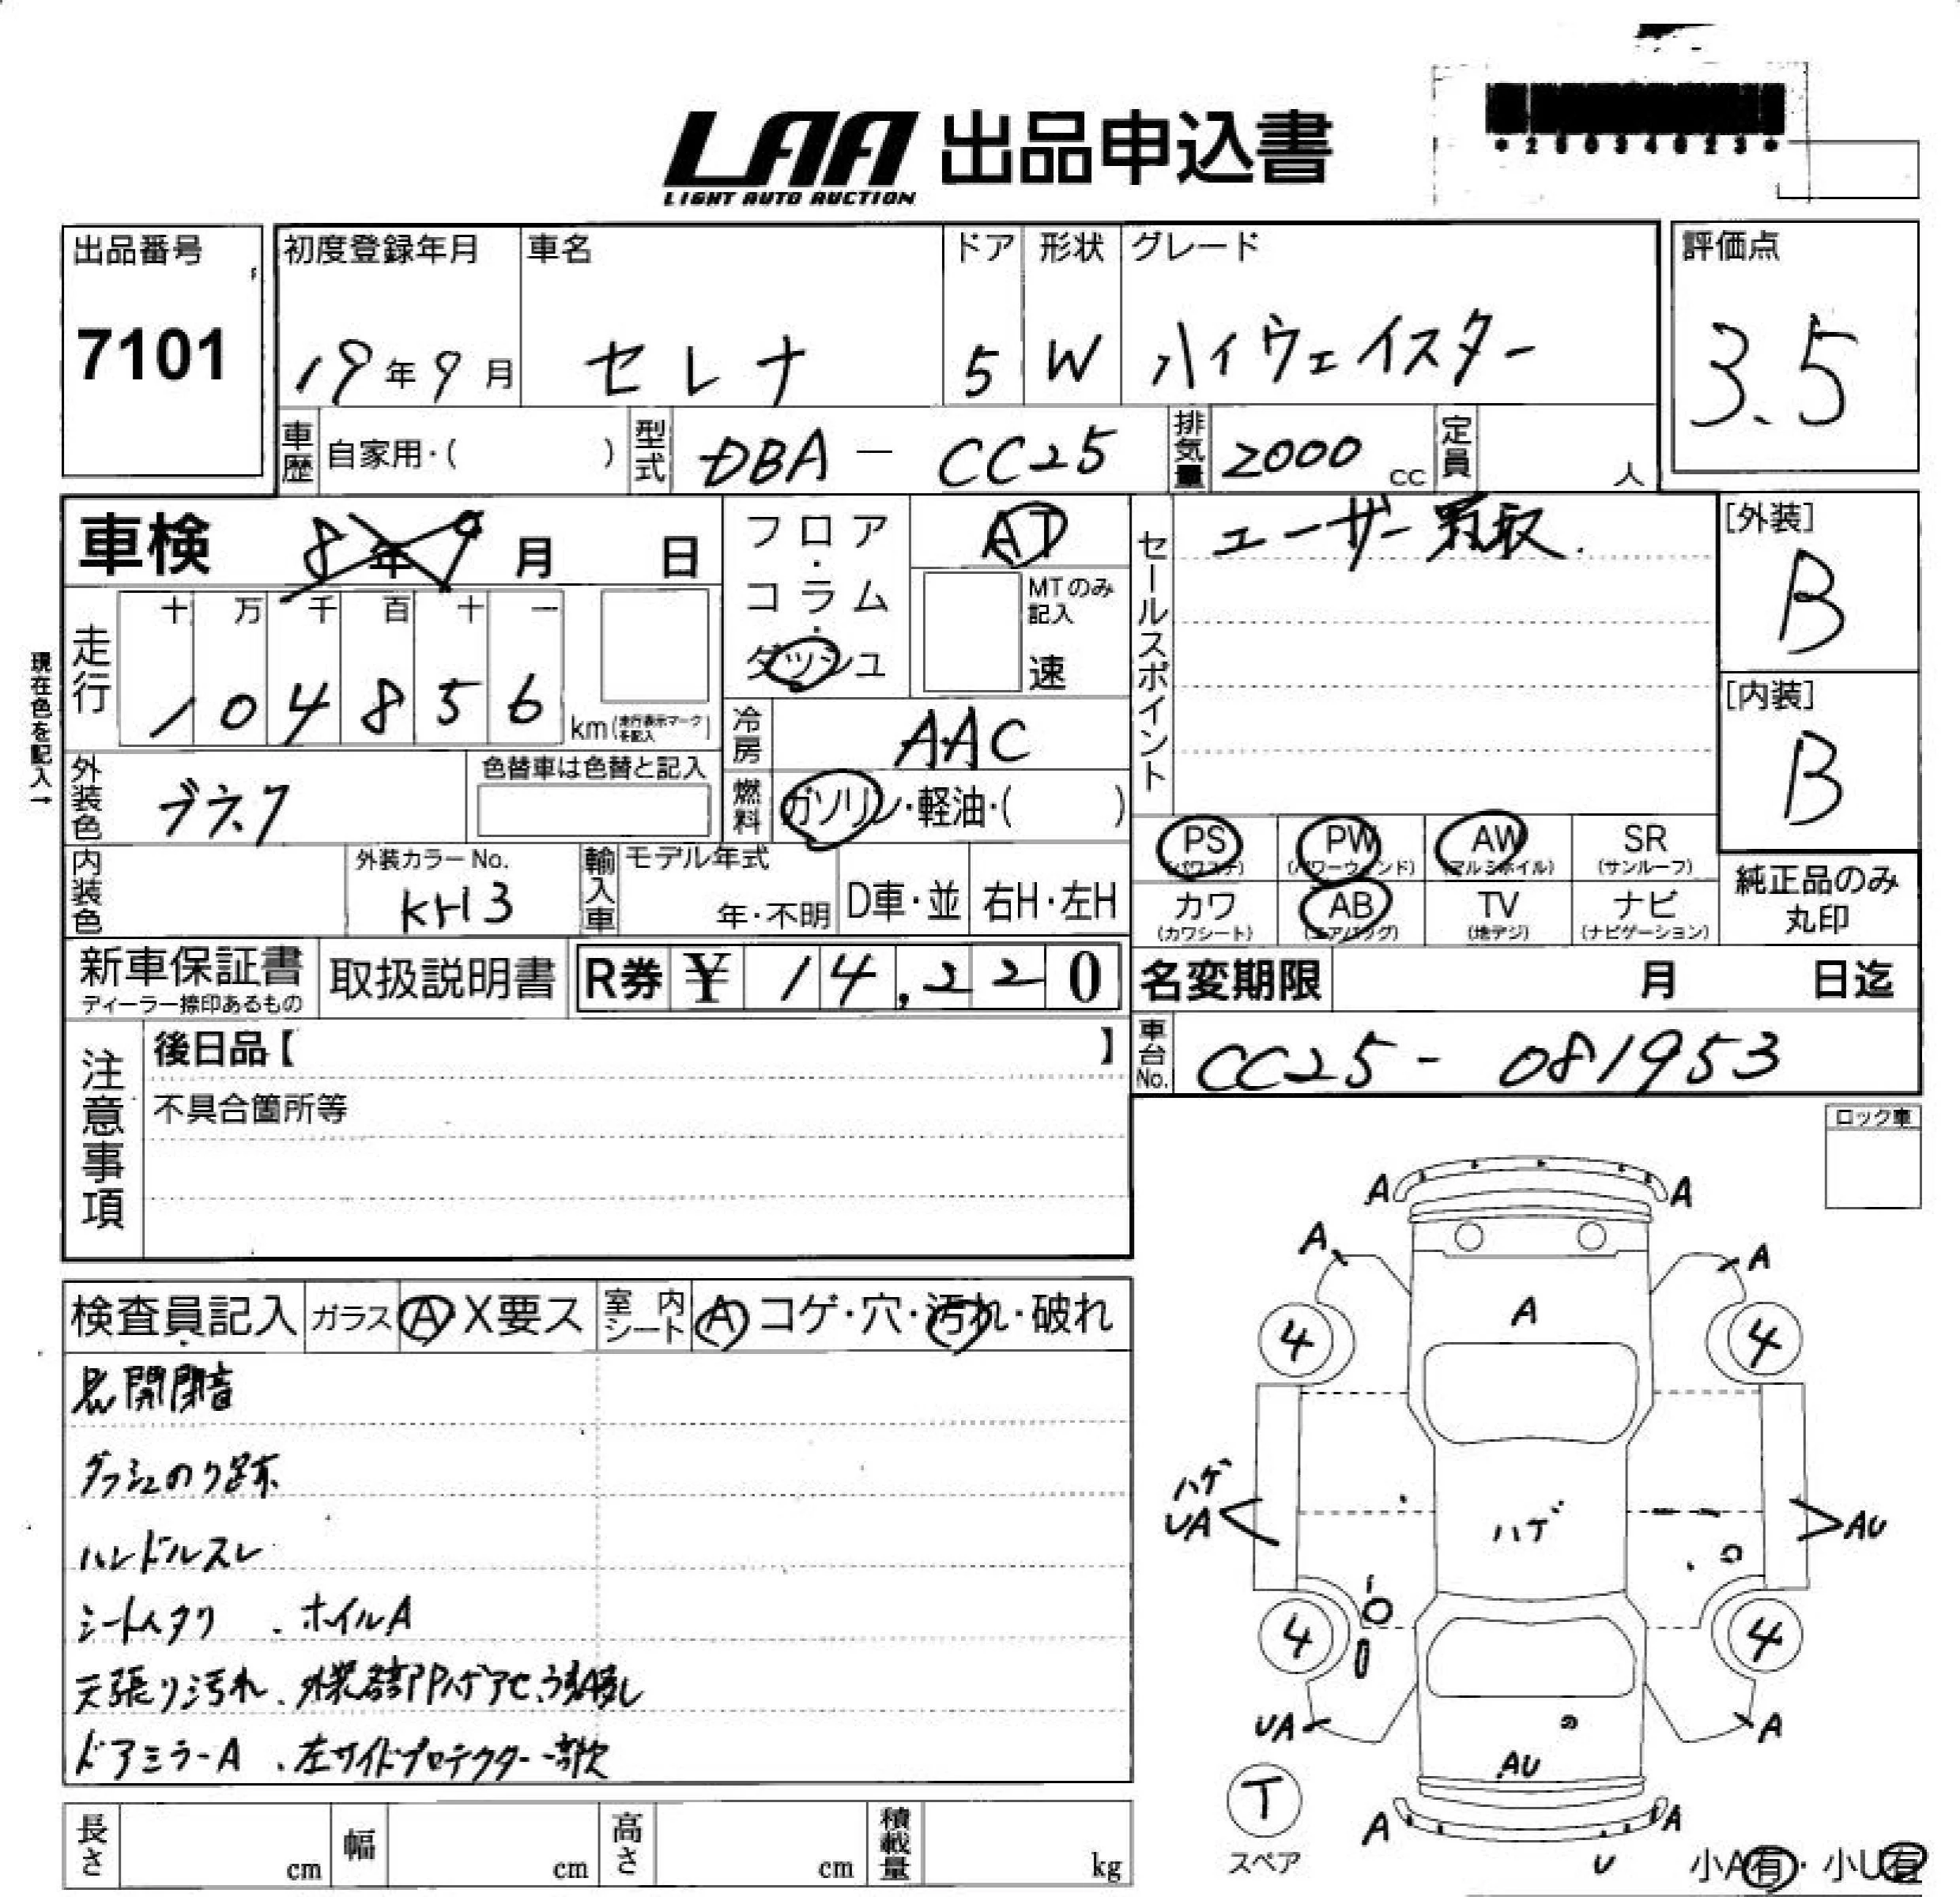 LAA 出品申込書
LIGHT AUTO AUCTION
*25034023*
出品番号
7101
初度登録年月
19年9月
車名
セレナ
ドア
5
形状
W
グレード
ハイウェイスター
評価点
3.5
車歴
自家用・( )
型式
DBA - CC25
排気量
2000 cc
定員
人
車検
8年9月 日
フロア・コラム・ダッシュ
AT
MTのみ記入
速
セールスポイント
ユーザー買取.
[外装]
B
[内装]
B
現在色を記入→
走行
十 万 千 百 十 一
1 0 4 8 5 6
km(走行表示マークを記入)
冷房
AAC
外装色
色替車は色替と記入
燃料
ガソリン・軽油・( )
PS
(パワステ)
PW
(パワーウィンド)
AW
(アルミホイル)
SR
(サンルーフ)
カワ
(カワシート)
AB
(エアバッグ)
TV
(地デジ)
ナビ
(ナビゲーション)
純正品のみ
丸印
内装色
外装カラーNo.
KH3
輸入車
モデル年式
年・不明
D車・並
右H・左H
新車保証書
ディーラー捺印あるもの
取扱説明書
R券 ¥ 14,220
名変期限 月 日迄
注意事項
後日品【 】
不具合箇所等
車台No.
CC25 - 081953
ロック車
検査員記入
ガラス
A X要ス
室内シート
A コゲ・穴・汚れ・破れ
開閉音
ダッシュのり跡
ハンドルスレ
シートヘタリ . ホイルA
天張り汚れ、外装各部PPハゲアセ
ドアミラーA . 左サイドプロテクター一部欠
A A
A A
A
4 4
ハゲ
UA
ハゲ
AU
4 4
UA A
AU
T
スペア
A A
U
小A有・小U有
長さ cm
幅 cm
高さ cm
積載量 kg